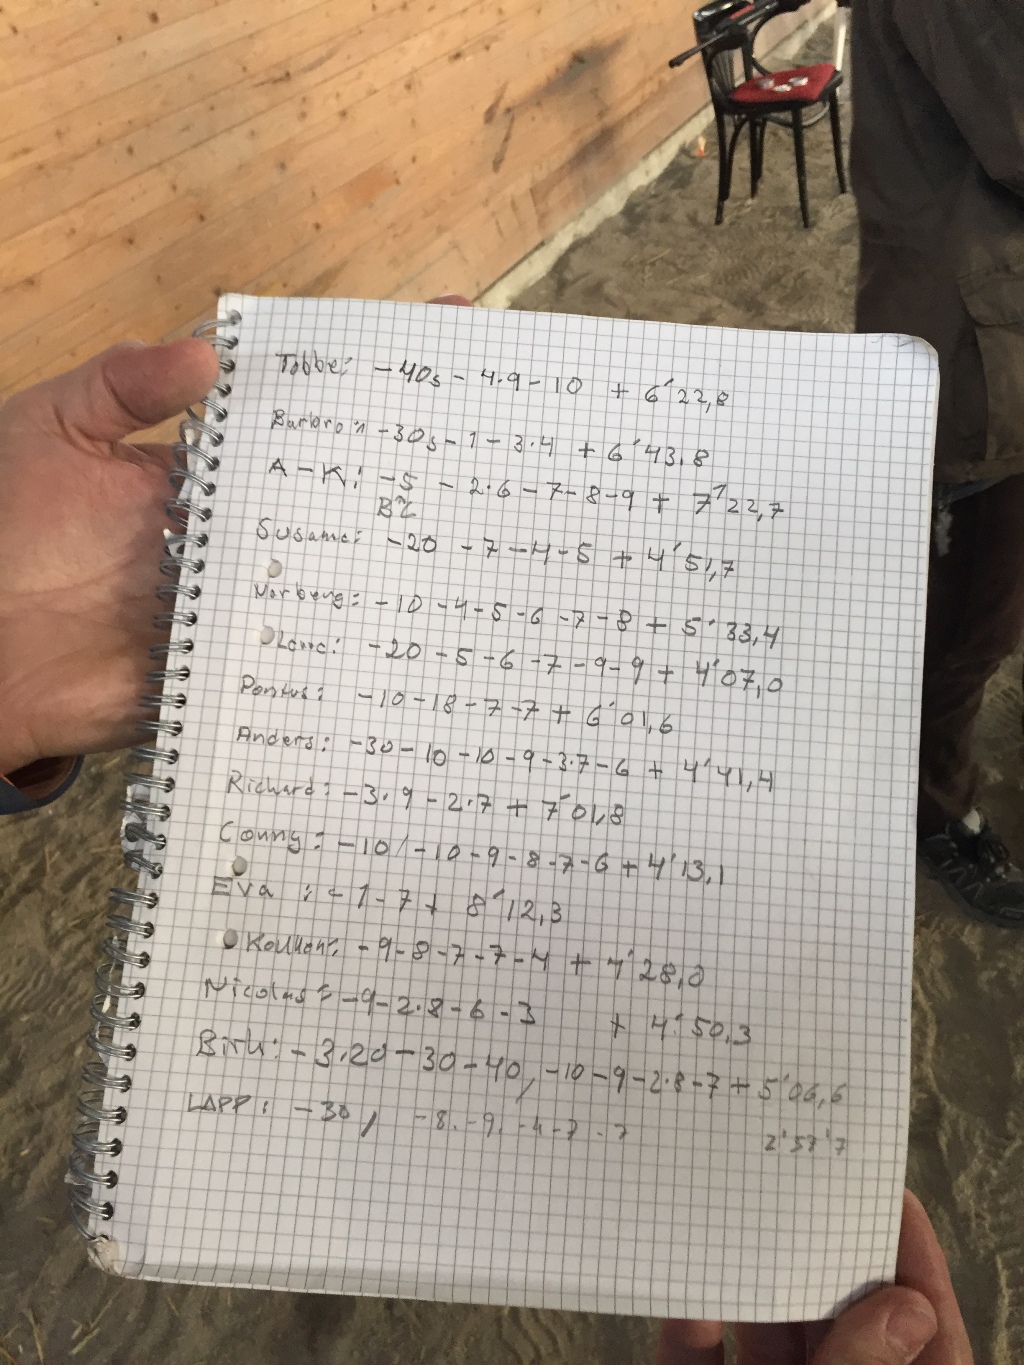 Tobbe: -40s - 4·9 - 10 + 6'22,8
Barbro: -30s - 1 - 3·4 + 6'43,8
A-K: -5 - 2·6 - 7 - 8 - 9 + 7'22,7
Susanne: -20 - 7 - 4 - 5 + 4'51,7
Norberg: -10 - 4 - 5 - 6 - 7 - 8 + 5'33,4
-20 - 5 - 6 - 7 - 9 - 9 + 4'07,0
Pontus: -10 - 18 - 7 - 7 + 6'01,6
Anders: -30 - 10 - 10 - 9 - 3·7 - 6 + 4'41,4
Richard: -3·9 - 2·7 + 7'01,8
Conny: -10 / -10 - 9 - 8 - 7 - 6 + 4'13,1
Eva: -1 - 7 + 8'12,3
-9 - 8 - 7 - 7 - 4 + 4'28,0
Nicolas: -9 - 2·8 - 6 - 3 + 4'50,3
-3·20 - 30 - 40, -10 - 9 - 2·8 - 7 + 5'06,6
LAPP: -30 / -8 - 9 - 4 - 7 - 7 2'57'7